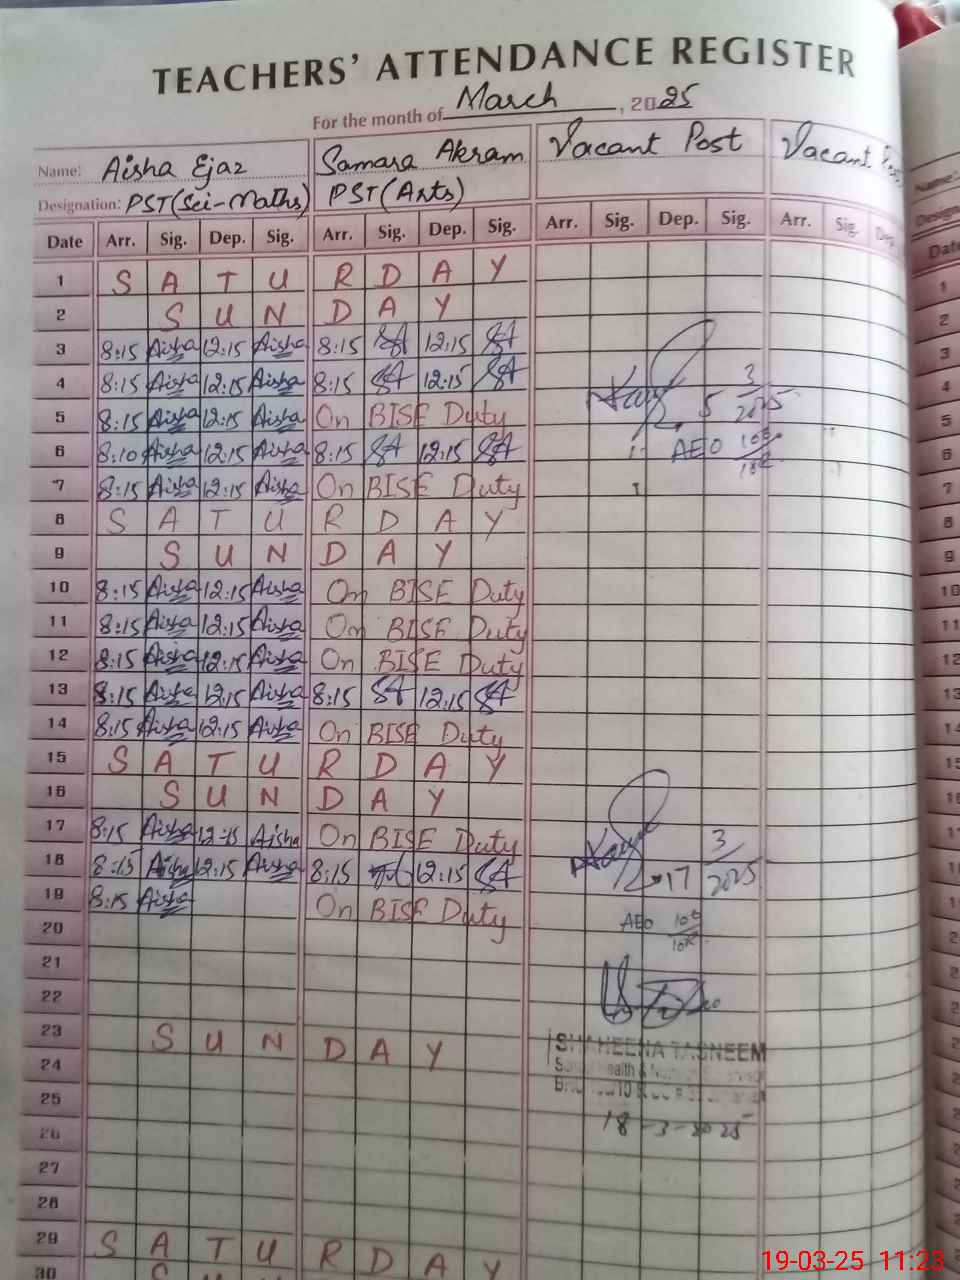 TEACHERS' ATTENDANCE REGISTER
For the month of March, 2025
Name: Aisha Ejaz Samara Akram Vacant Post Vacant
Designation: PST(Sci-Maths) PST(Arts)
Date Arr. Sig. Dep. Sig. Arr. Sig. Dep. Sig. Arr. Sig. Dep. Sig. Arr. Sig. Dep.
1 S A T U R D A Y
2 S U N D A Y
3 8:15 Aisha 12:15 Aisha 8:15 SA 12:15 SA
4 8:15 Aisha 12:15 Aisha 8:15 SA 12:15 SA
5 8:15 Aisha 12:15 Aisha On BISE Duty 5 3 2025
6 8:10 Aisha 12:15 Aisha 8:15 SA 12:15 SA AEO
7 8:15 Aisha 12:15 Aisha On BISE Duty
8 S A T U R D A Y
9 S U N D A Y
10 8:15 Aisha 12:15 Aisha On BISE Duty
11 8:15 Aisha 12:15 Aisha On BISE Duty
12 8:15 Aisha 12:15 Aisha On BISE Duty
13 8:15 Aisha 12:15 Aisha 8:15 SA 12:15 SA
14 8:15 Aisha 12:15 Aisha On BISE Duty
15 S A T U R D A Y
16 S U N D A Y
17 8:15 Aisha 12:15 Aisha On BISE Duty
18 8:15 Aisha 12:15 Aisha 8:15 SA 12:15 SA 17 3 2025
19 8:15 Aisha On BISE Duty
20 AEO
21
22
23 S U N D A Y
24 SHAHEENA TASNEEM
25
26 18-3-2025
27
28
29 S A T U R D A Y
30
19-03-25 11:23